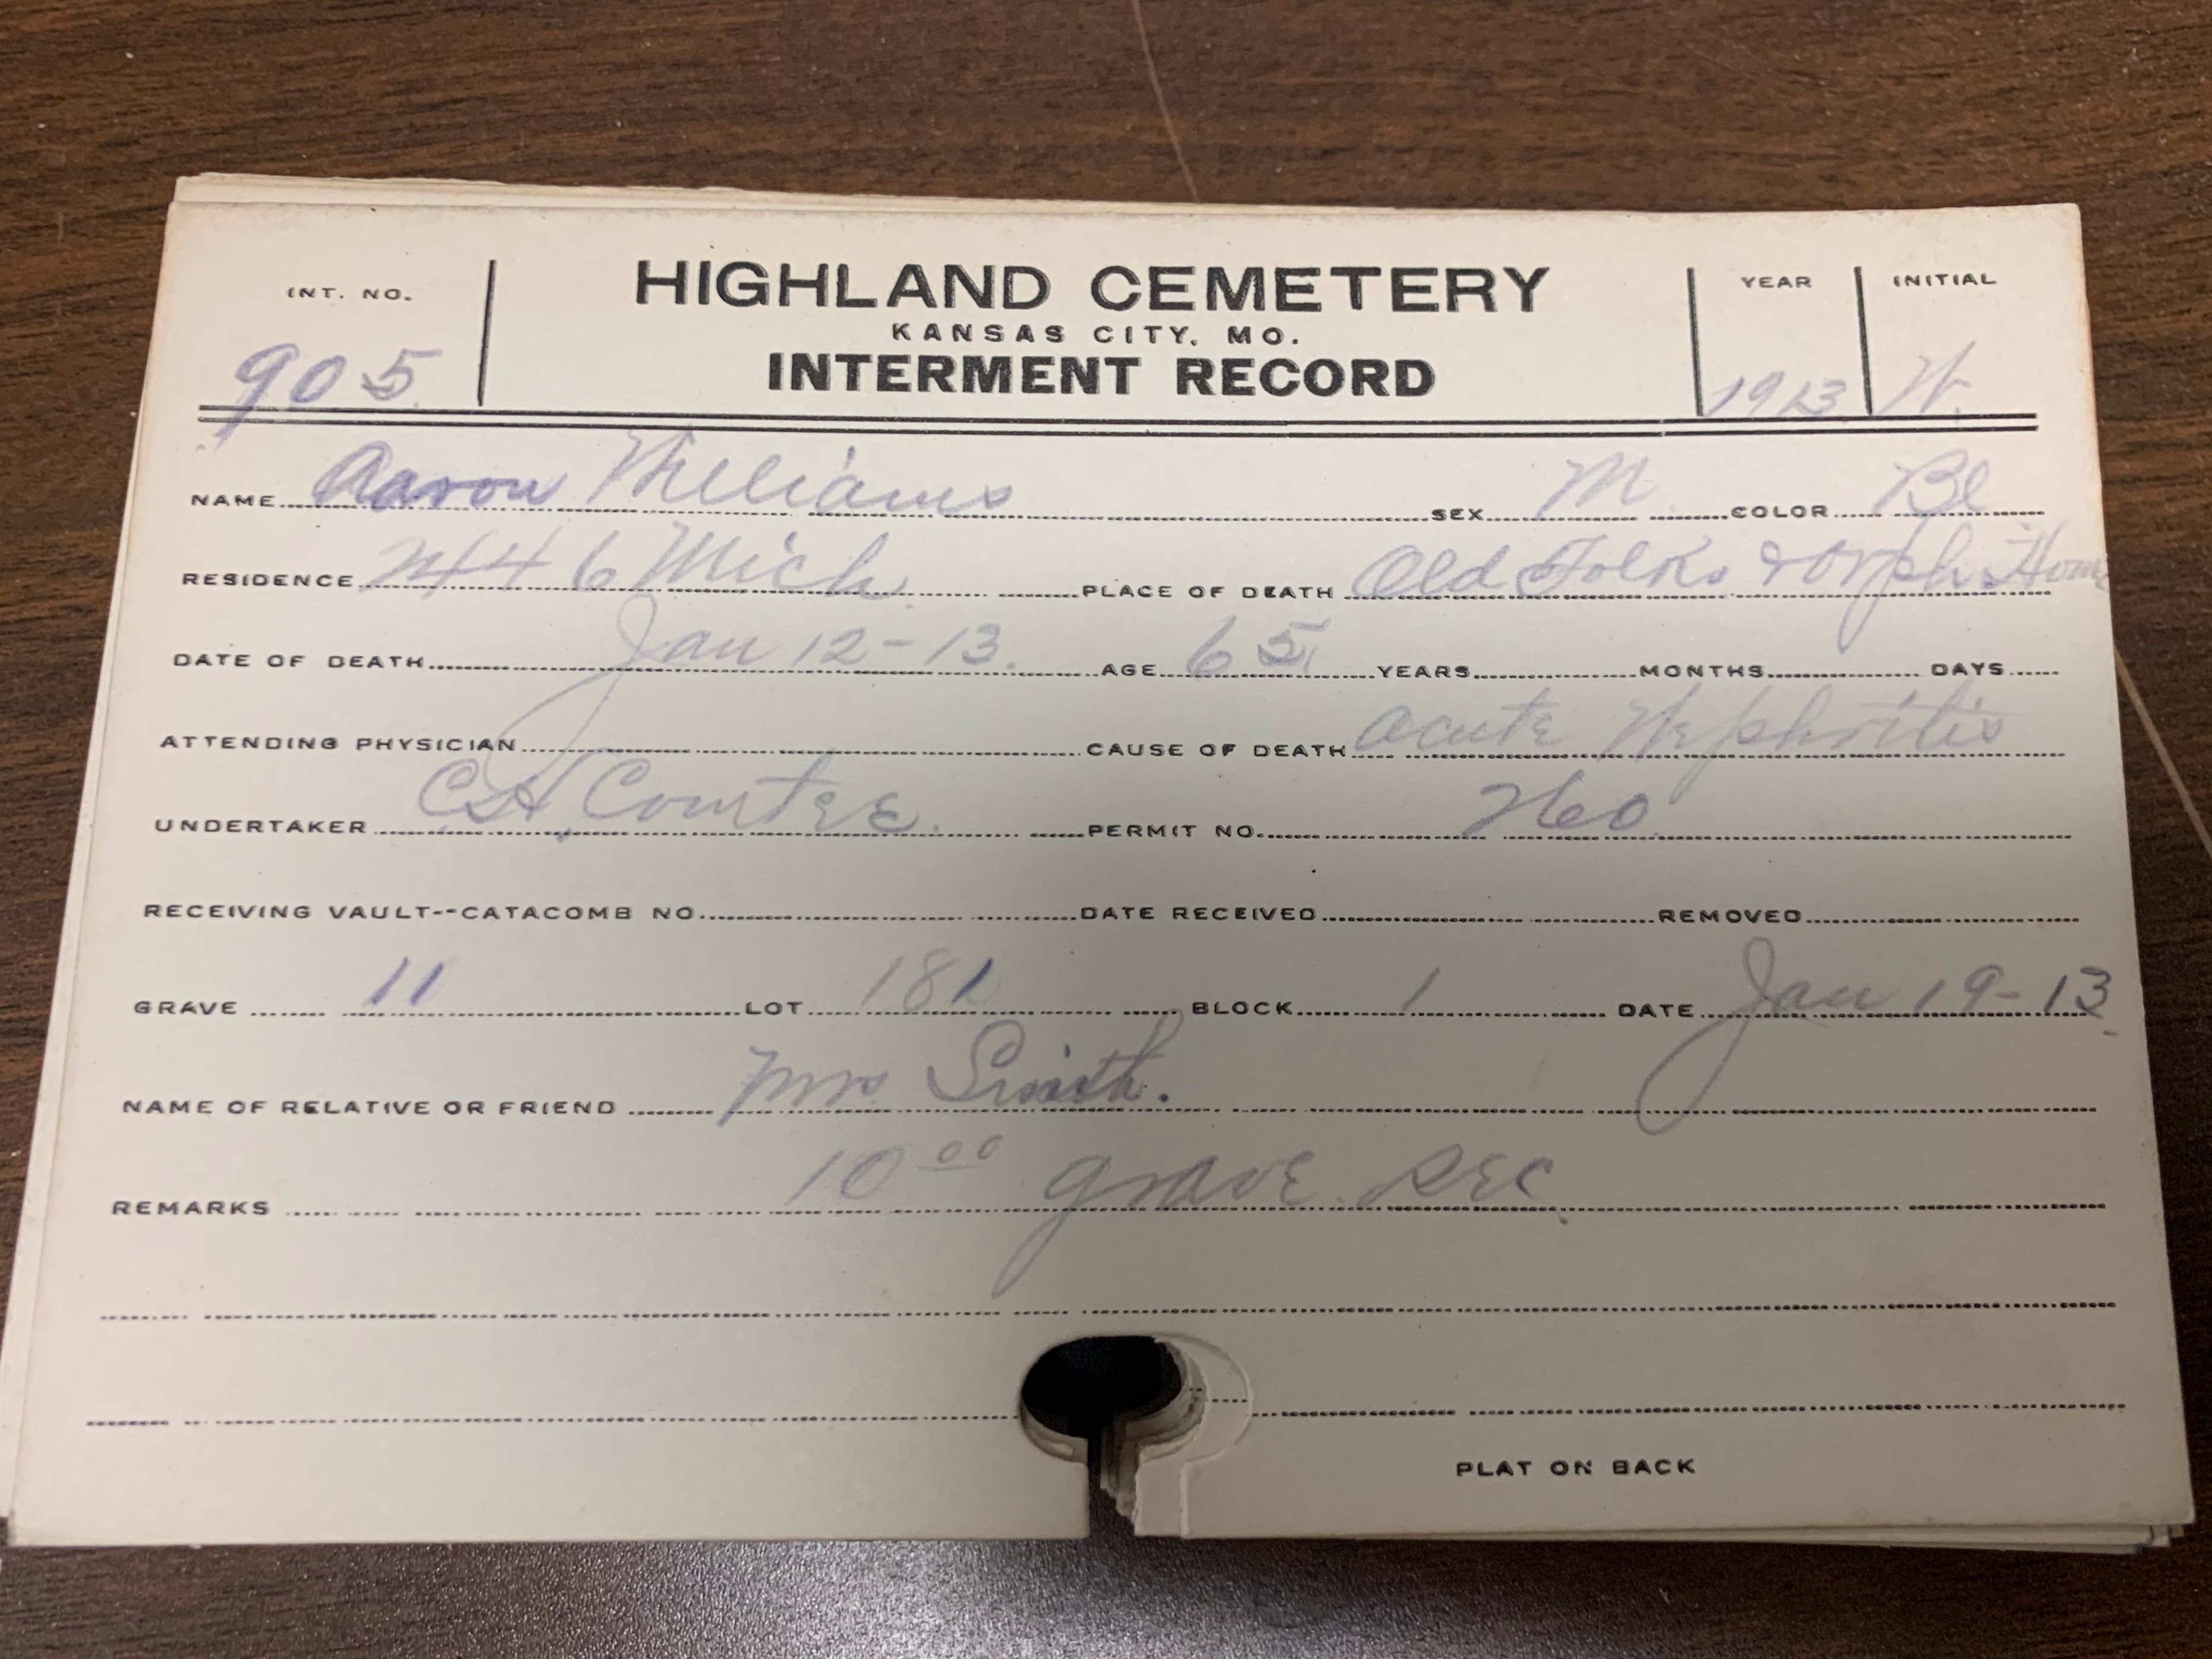 INT. NO. HIGHLAND CEMETERY YEAR INITIAL
KANSAS CITY, MO.
905 INTERMENT RECORD 1913 W.
NAME Aaron Williams SEX M COLOR Bl
RESIDENCE 2446 Mich. PLACE OF DEATH Old Folks & Orph. Home
DATE OF DEATH Jan 12-13. AGE 65 YEARS MONTHS DAYS
ATTENDING PHYSICIAN CAUSE OF DEATH Acute Nephritis
UNDERTAKER C.H. Countee. PERMIT NO. 260
RECEIVING VAULT--CATACOMB NO. DATE RECEIVED REMOVED
GRAVE 11 LOT 181 BLOCK 1 DATE Jan 19-13
NAME OF RELATIVE OR FRIEND Mrs Smith.
REMARKS 10 00 grave Rec
PLAT ON BACK